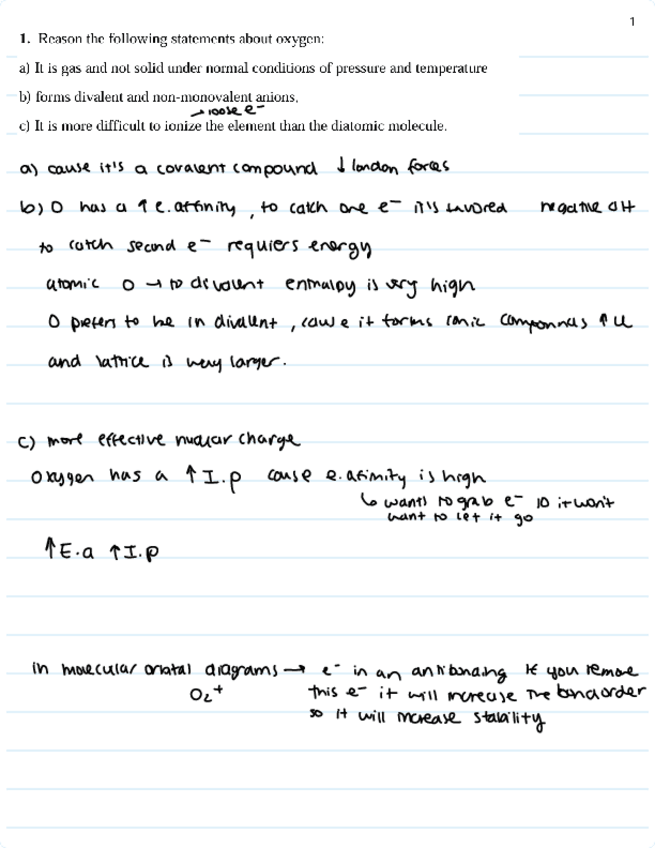 1
1. Reason the following statements about oxygen:
a) It is gas and not solid under normal conditions of pressure and temperature
b) forms divalent and non-monovalent anions,
→ loose e⁻
c) It is more difficult to ionize the element than the diatomic molecule.
a) cause it's a covalent compound ↓ london forces
b) O has a ↑ e. affinity, to catch one e⁻ it's favored negative ΔH
to catch second e⁻ requiers energy
atomic O → to divalent enthalpy is very high
O prefers to be in divalent, cause it forms ionic compounds ↑ U
and lattice is very larger.
c) more effective nuclear charge
oxygen has a ↑ I.p cause e. afinity is high
↳ wants to grab e⁻ so it won't
want to let it go
↑E.a ↑I.p
in molecular orbital diagrams → e⁻ in an antibonding if you remove
O₂⁺ this e⁻ it will increase the bond order
so it will increase stability